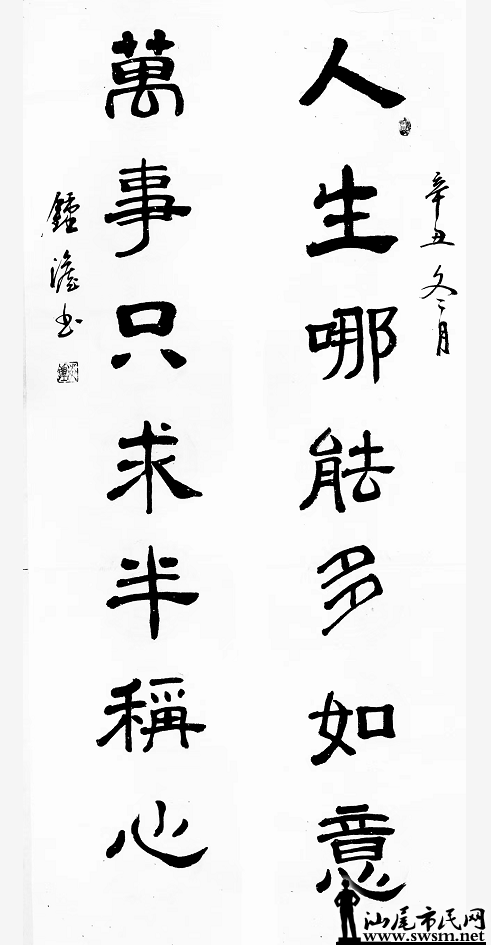 辛丑冬月
人生哪能多如意
萬事只求半稱心
鍾澹书
汕尾市民网
www.swsm.net